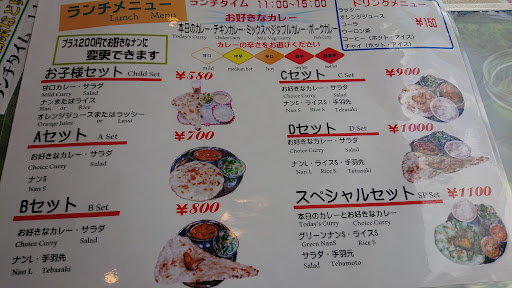 ランチメニュー
Lunch Menu
ランチタイム 11:00~15:00
ドリンクメニュー
プラス200円でお好きなナンに
変更できます
お好きなカレー
本日のカレー・チキンカレー・ミックスベジタブルカレー・ポークカレー
Today's Curry Chicken Curry Mix Veg Curry
カレーの辛さをお選びください
ラッシー
オレンジジュース
コーラ
ウーロン茶
コーヒー(ホット・アイス)
チャイ(ホット・アイス)
¥150
お子様セット Child Set
¥580
甘口カレー・サラダ
Mild Curry Salad
ナンまたはライス
Nan or Rice
オレンジジュースまたはラッシー
Orange Juice or Lassi
Aセット A Set
¥700
お好きなカレー・サラダ
Choice Curry Salad
ナンS
Nan S
Bセット B Set
¥800
お好きなカレー・サラダ
Choice Curry Salad
ナンL・手羽先
Nan L Tebasaki
Cセット C Set
¥900
お好きなカレー・サラダ
Choice Curry Salad
ナンS・ライスS・手羽先
Nan S Rice S Tebasaki
Dセット D Set
¥1000
お好きなカレー・サラダ
Choice Curry Salad
ナンL・ライスS・手羽先
Nan L Rice S Tebasaki
スペシャルセット SP Set
¥1100
本日のカレーとお好きなカレー
Today's Curry Choice Curry
グリーンナンS・ライスS
Green NanS Rice S
サラダ・手羽元
Salad Tebamoto